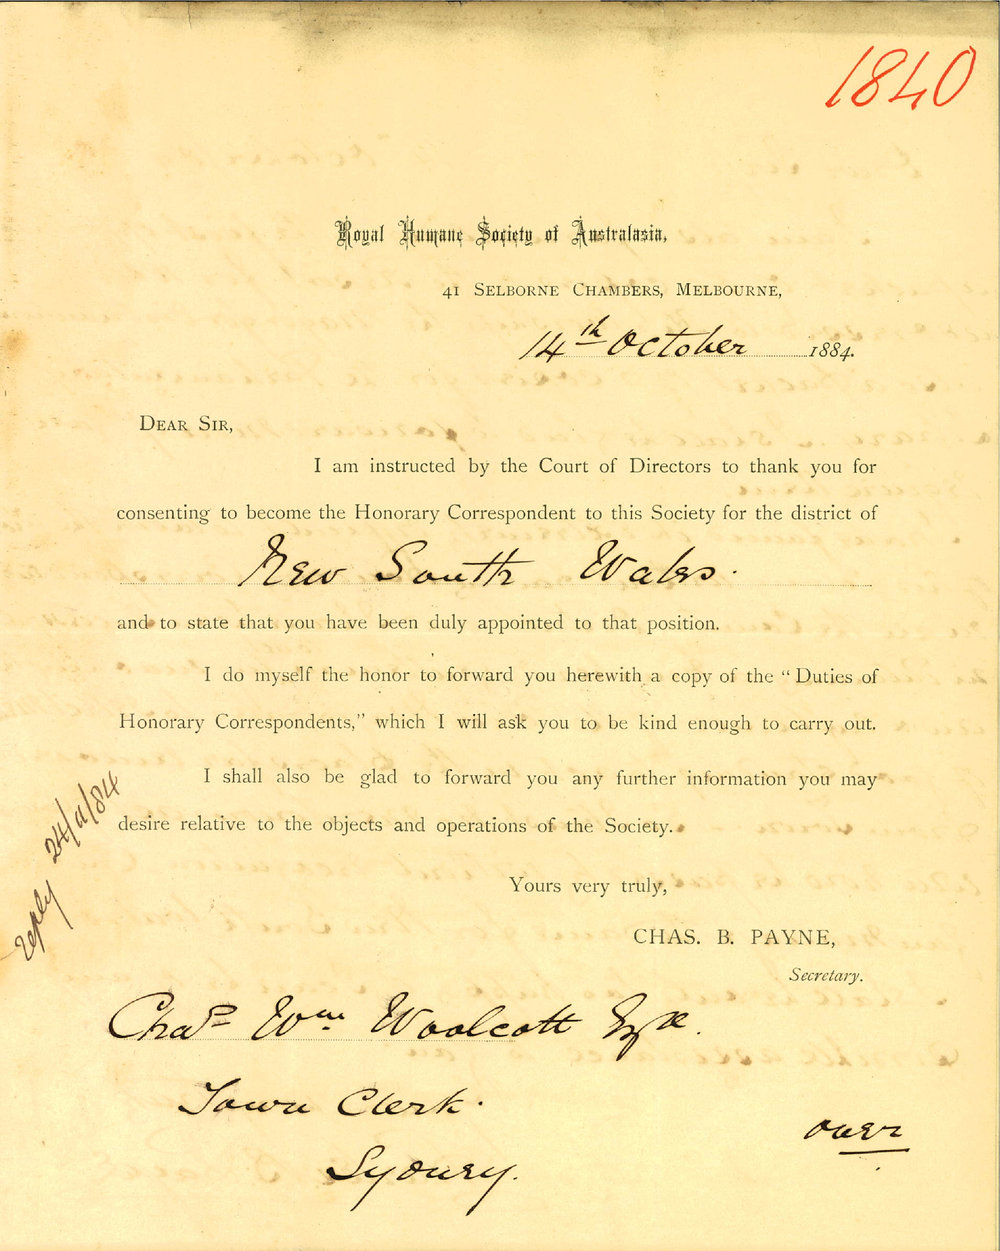 1840
Royal Humane Society of Australasia,
41 Selborne Chambers, Melbourne,
14th October 1884.
Dear Sir,
I am instructed by the Court of Directors to thank you for
consenting to become the Honorary Correspondent to this Society for the district of
New South Wales.
and to state that you have been duly appointed to that position.
I do myself the honor to forward you herewith a copy of the "Duties of
Honorary Correspondents," which I will ask you to be kind enough to carry out.
I shall also be glad to forward you any further information you may
desire relative to the objects and operations of the Society.
reply 24/11/84
Yours very truly,
CHAS. B. PAYNE,
Secretary.
Chas Wm Woolcott Esqre.
Town Clerk.
Sydney.
over